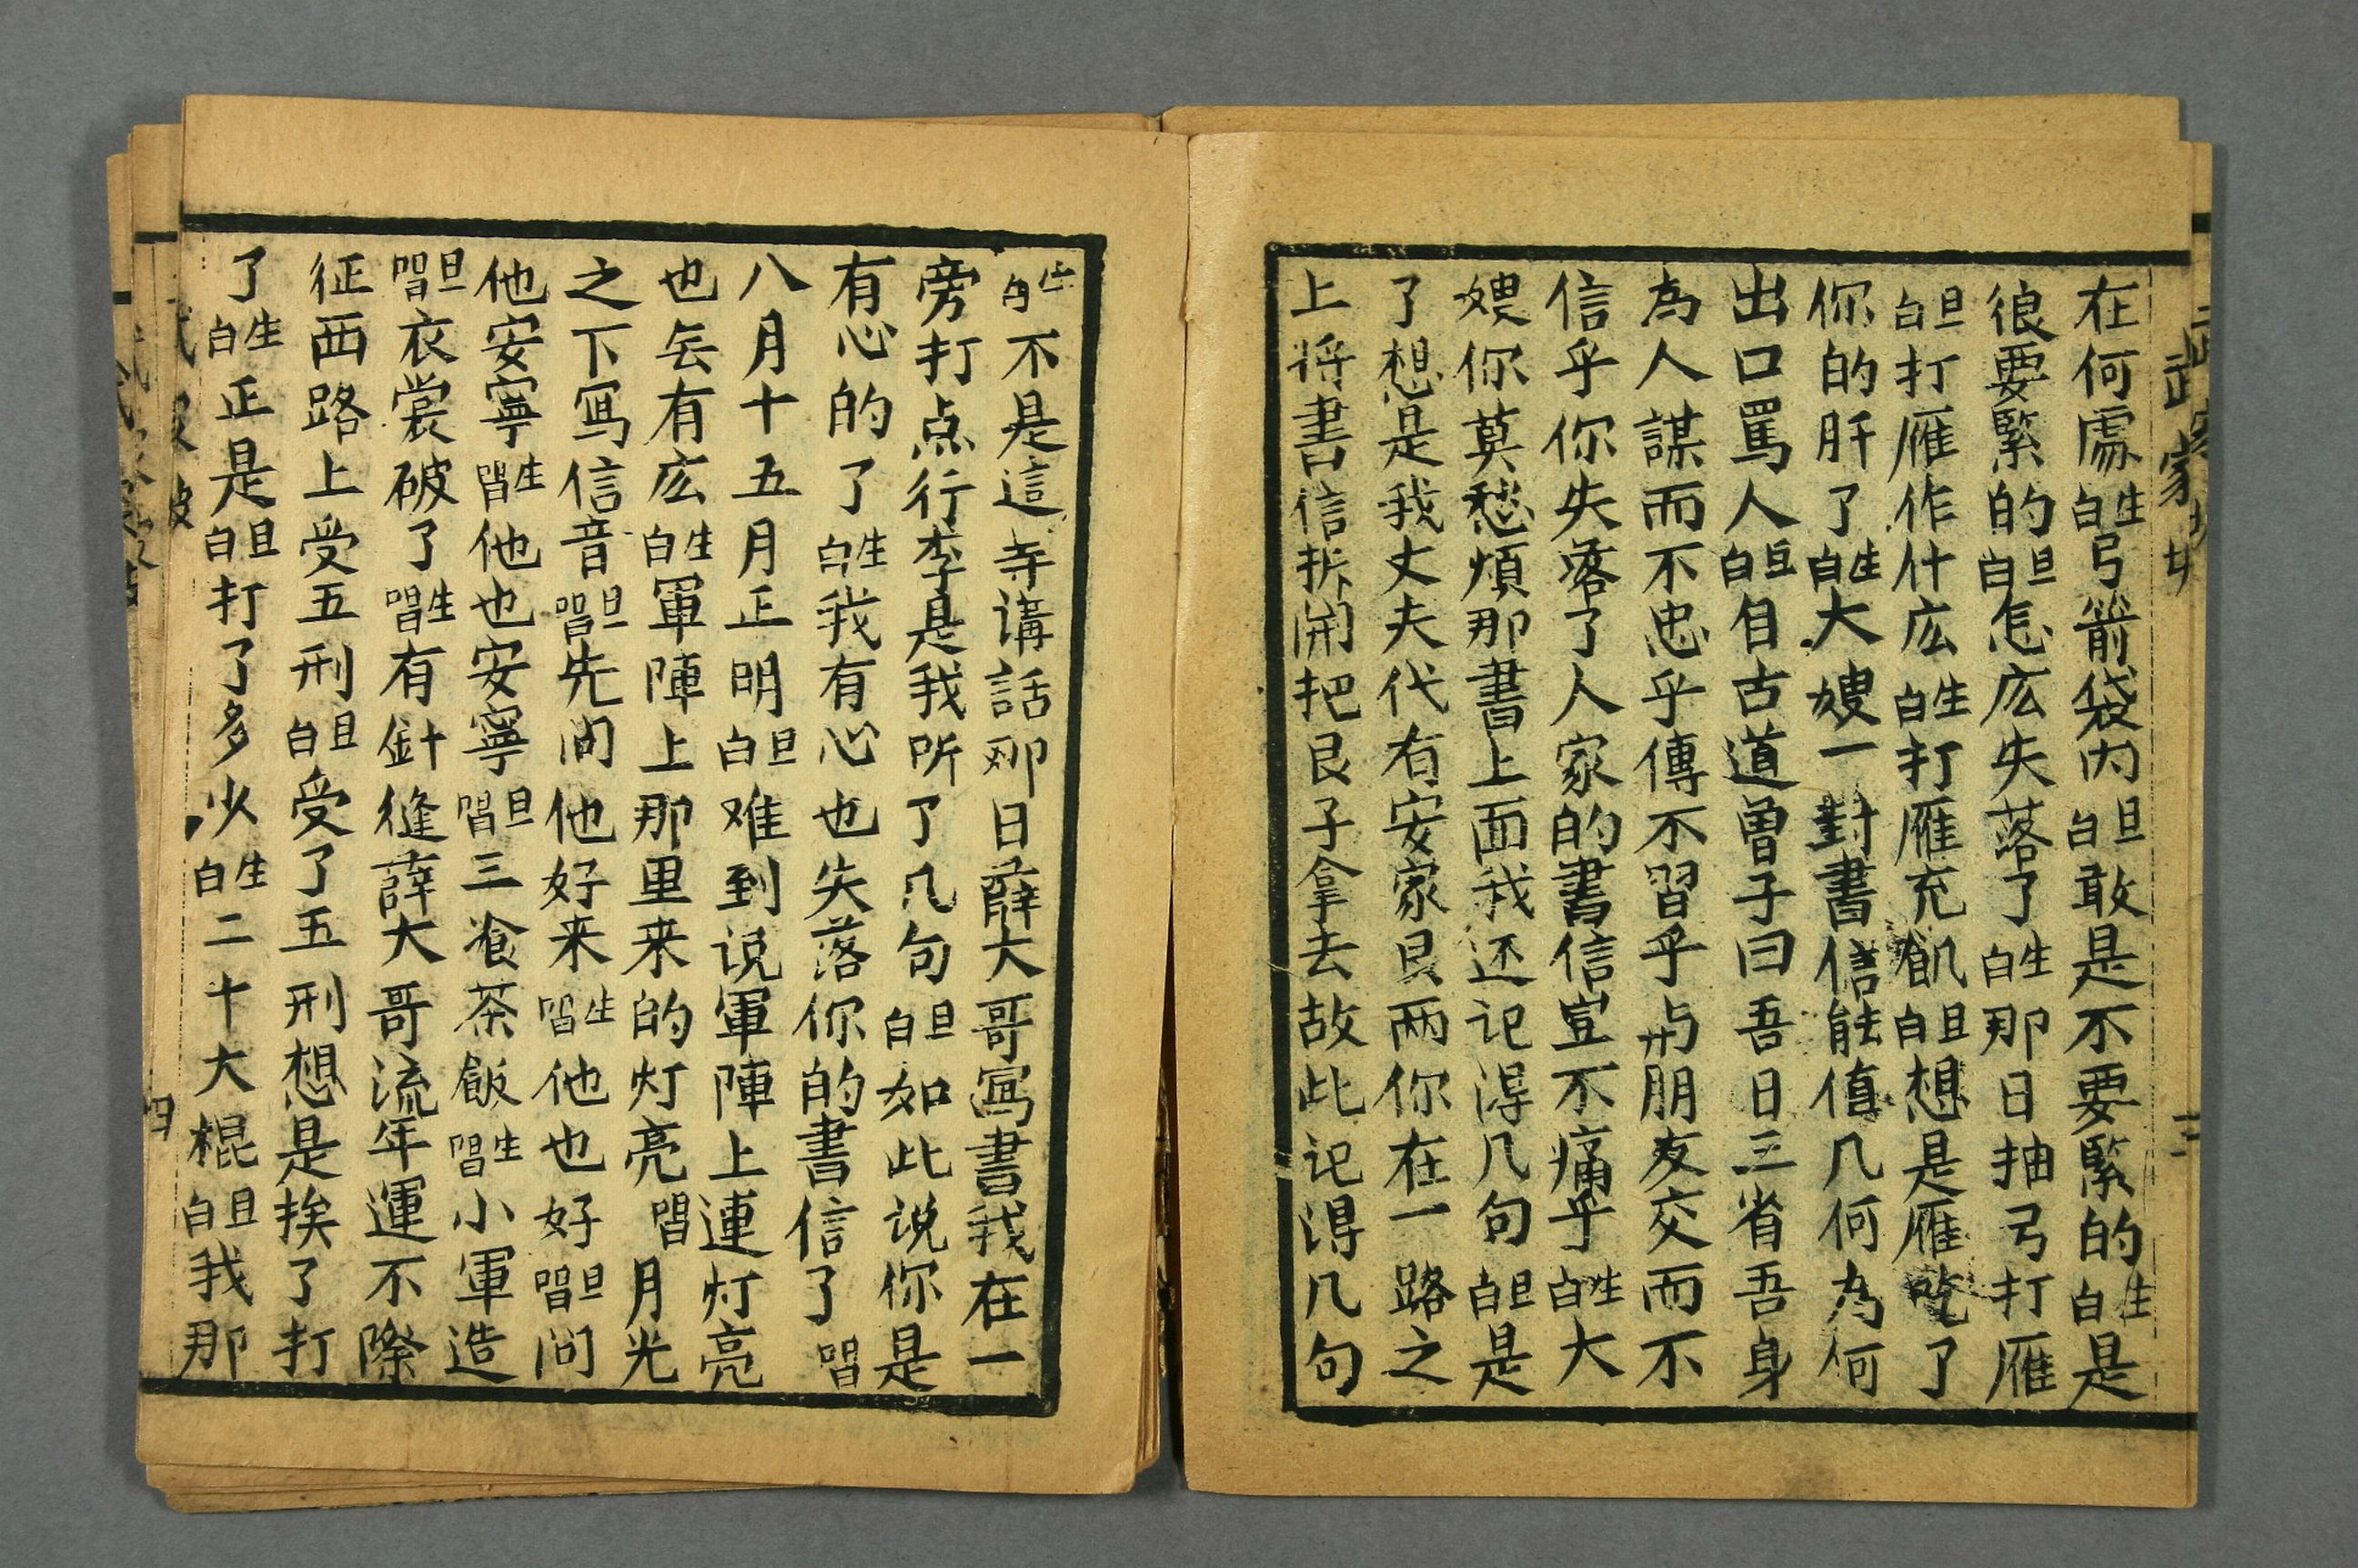 在何處生白弓箭袋内旦白敢是不要緊的生白是
很要緊的旦白怎庅失落了生白那日抽弓打雁
旦白打雁作什庅生白打雁充飢旦白想是雁吃了
你的肝了生白大嫂一對書信能值几何为何
出口罵人旦白自古道曾子曰吾日三省吾身
為人謀而不忠乎傳不習乎与朋友交而不
信乎你失落了人家的書信豈不痛乎生白大
嫂你莫愁煩那書上面我还记得几句旦白是
了想是我丈夫代有安家艮两你在一路之
上将書信拆開把艮子拿去故此记得几句
生白不是這寺講話那日薛大哥寫書我在一
旁打点行李是我听了几句旦白如此说你是
有心的了生白我有心也失落你的書信了唱
八月十五月正明旦白难到说軍陣上連灯亮
也無有庅生白軍陣上那里来的灯亮唱月光
之下寫信音旦唱先问他好来生唱他也好旦唱问
他安寧生唱他也安寧旦唱三湌茶飯生唱小軍造
旦唱衣裳破了生唱有針縫薛大哥流年運不際
征西路上受五刑旦白受了五刑想是挨了打
了生白正是旦白打了多少生白二十大棍旦白我那
武家坡
三
四